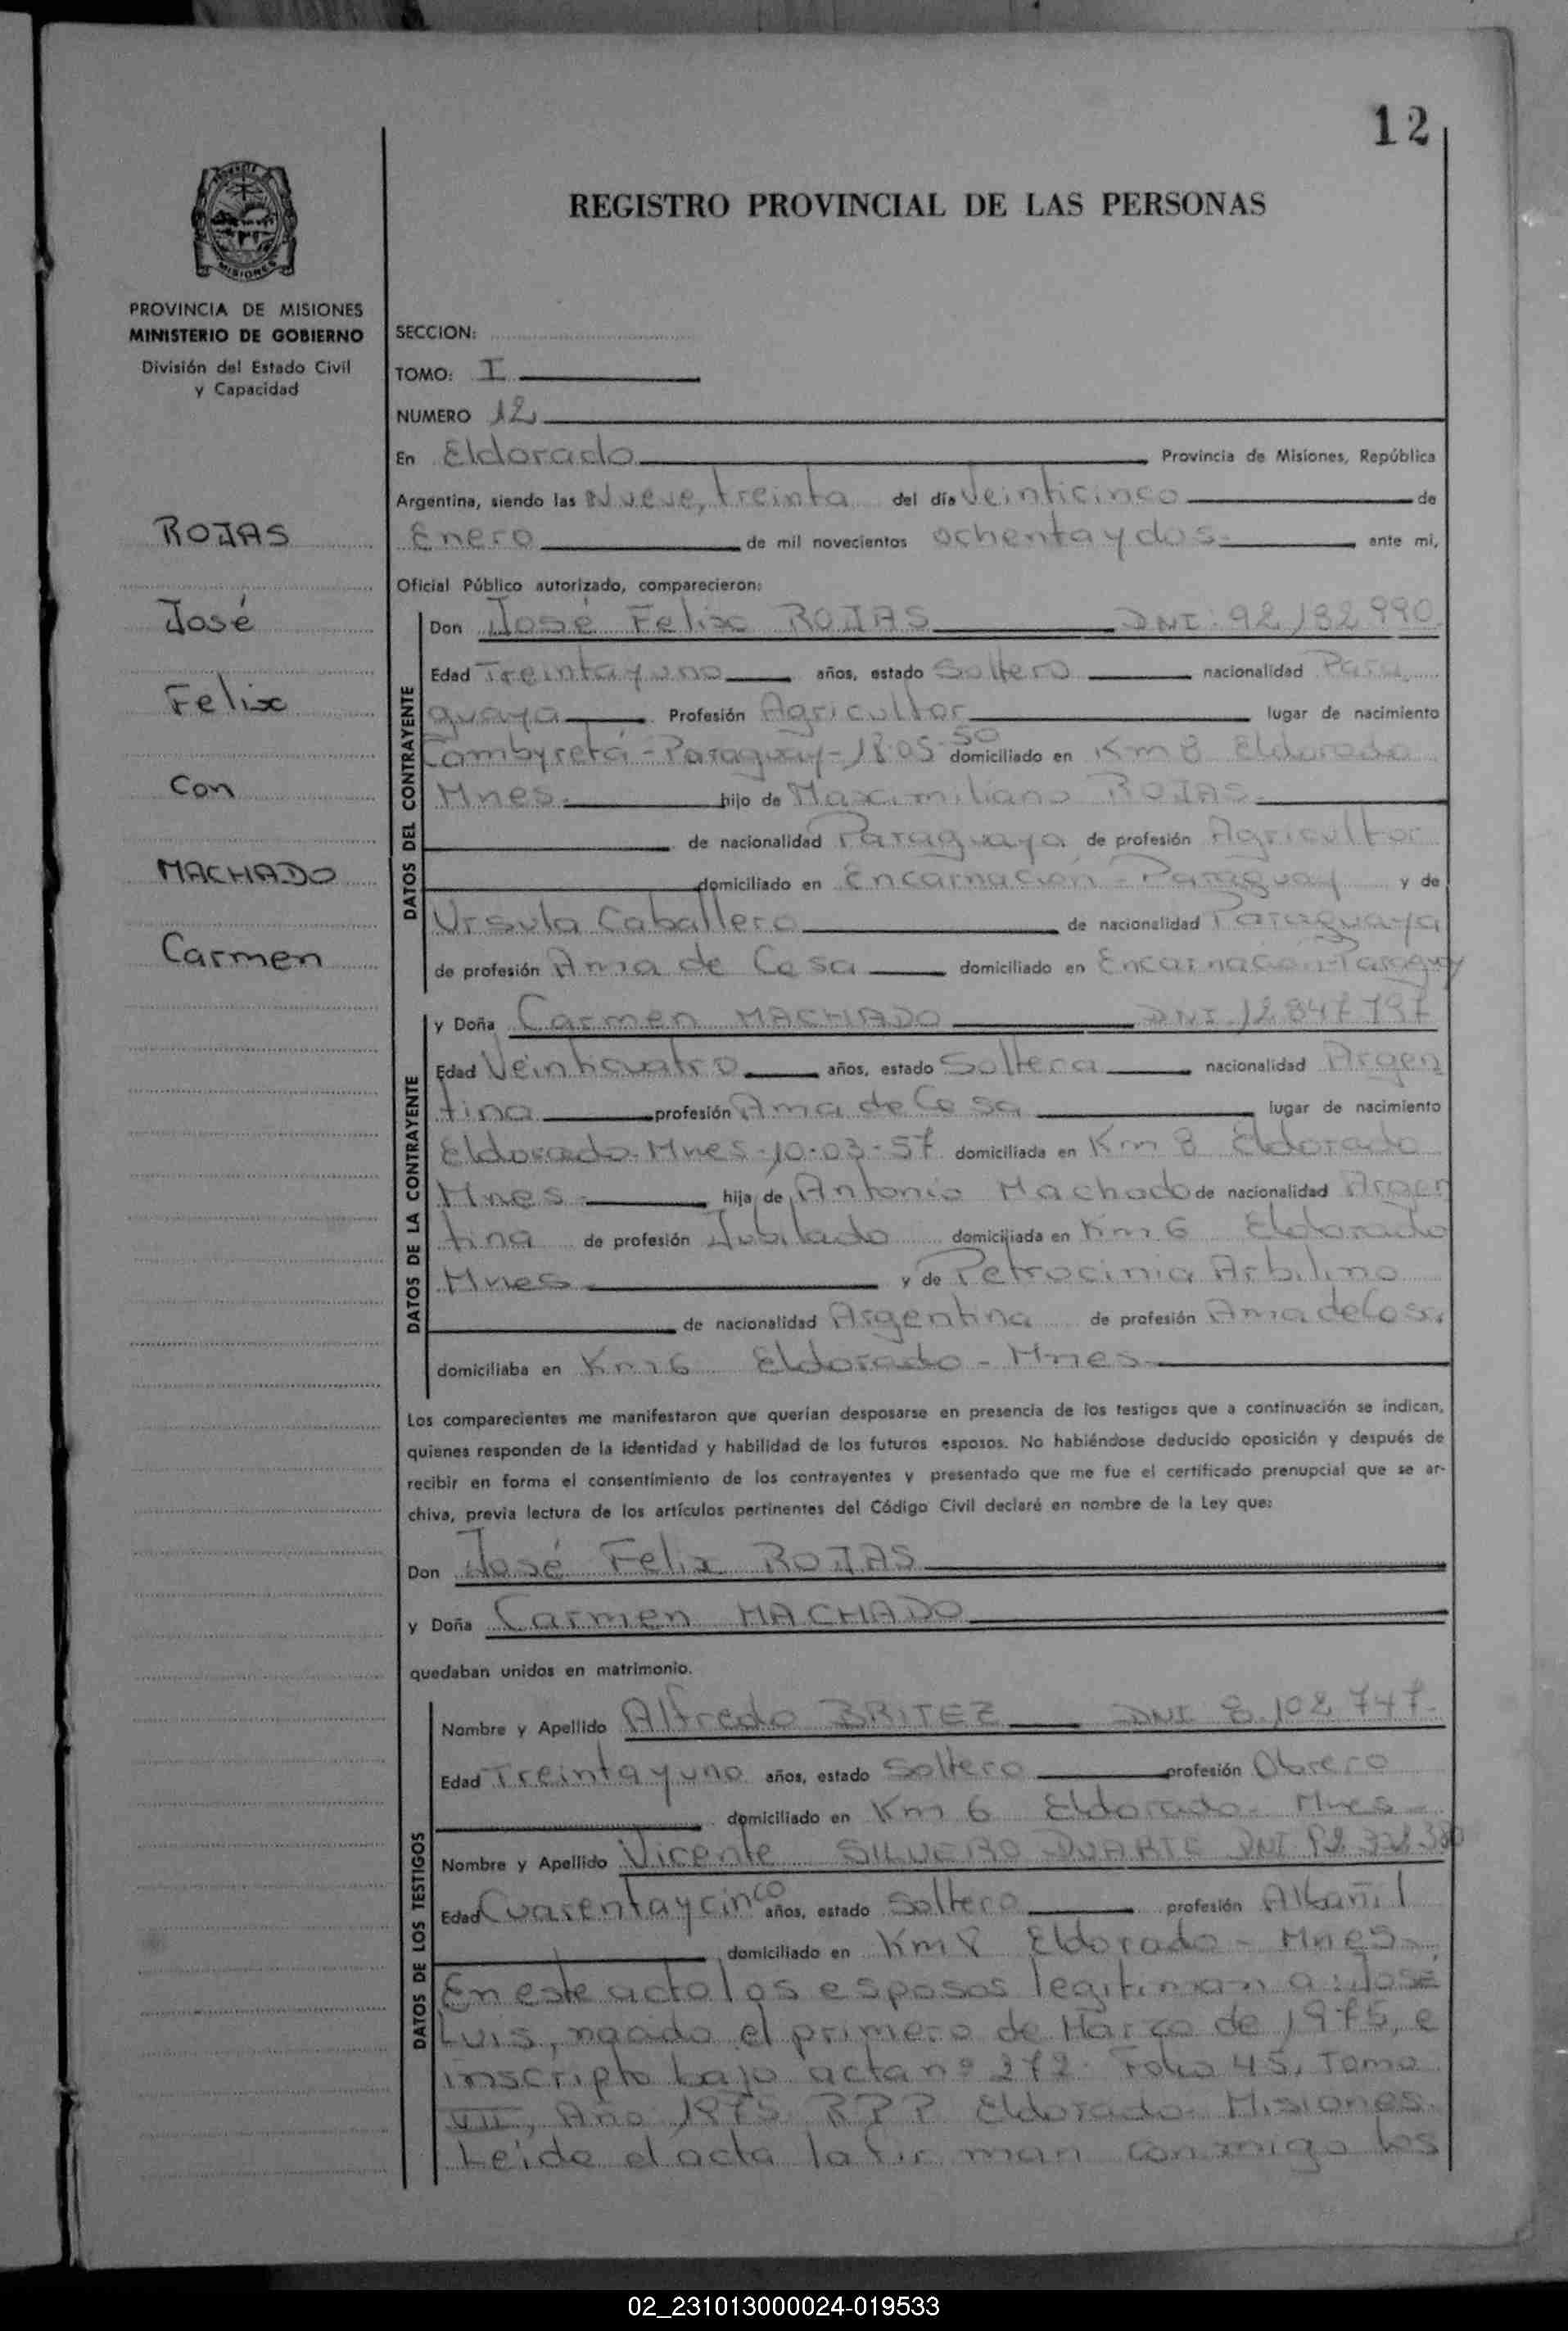 12
REGISTRO PROVINCIAL DE LAS PERSONAS
MISIONES
PROVINCIA DE MISIONES
MINISTERIO DE GOBIERNO
División del Estado Civil
y Capacidad
ROJAS
José
Felix
Con
MACHADO
Carmen
SECCION:
TOMO: I
NUMERO 12
En Eldorado Provincia de Misiones, República
Argentina, siendo las Nueve, treinta del día Veinticinco de
Enero de mil novecientos ochenta y dos ante mi,
Oficial Público autorizado, comparecieron:
DATOS DEL CONTRAYENTE
Don José Felix ROJAS DNI: 92.182.990
Edad Treinta y uno años, estado Soltero nacionalidad Para
guaya Profesión Agricultor lugar de nacimiento
Cambyretá - Paraguay - 18.05.50 domiciliado en Km 8 Eldorado
Mnes. hijo de Maximiliano ROJAS
de nacionalidad Paraguaya de profesión Agricultor
domiciliado en Encarnación - Paraguay y de
Ursula Caballero de nacionalidad Paraguaya
de profesión Ama de Casa domiciliado en Encarnación - Paraguay
DATOS DE LA CONTRAYENTE
y Doña Carmen MACHADO DNI. 12.847.797
Edad Veinticuatro años, estado Soltera nacionalidad Argen
tina profesión Ama de Casa lugar de nacimiento
Eldorado - Mnes - 10-03-57 domiciliada en Km 8 Eldorado
Mnes hija de Antonio Machado de nacionalidad Argen
tina de profesión Jubilado domiciliada en Km 6 Eldorado
Mnes y de Petrocinia Arbilino
de nacionalidad Argentina de profesión Ama de Casa
domiciliaba en Km 6 Eldorado - Mnes
Los comparecientes me manifestaron que querían desposarse en presencia de los testigos que a continuación se indican,
quienes responden de la identidad y habilidad de los futuros esposos. No habiéndose deducido oposición y después de
recibir en forma el consentimiento de los contrayentes y presentado que me fue el certificado prenupcial que se ar-
chiva, previa lectura de los artículos pertinentes del Código Civil declaré en nombre de la Ley que:
Don José Felix ROJAS
y Doña Carmen MACHADO
quedaban unidos en matrimonio.
DATOS DE LOS TESTIGOS
Nombre y Apellido Alfredo BRITEZ DNI 8.108.747
Edad Treinta y uno años, estado Soltero profesión Obrero
domiciliado en Km 6 Eldorado - Mnes
Nombre y Apellido Vicente SILVERO DUARTE DNI
Edad Cuarenta y cinco años, estado Soltero profesión Albañil
domiciliado en Km 8 Eldorado - Mnes
En este acto los esposos legitiman a: José
Luis, nacido el primero de Marzo de 1975, e
inscripto bajo acta nº 272. Folio 45, Tomo
VII, Año 1975 RPP Eldorado - Misiones.
Leida el acta la firman conmigo los
02_231013000024-019533